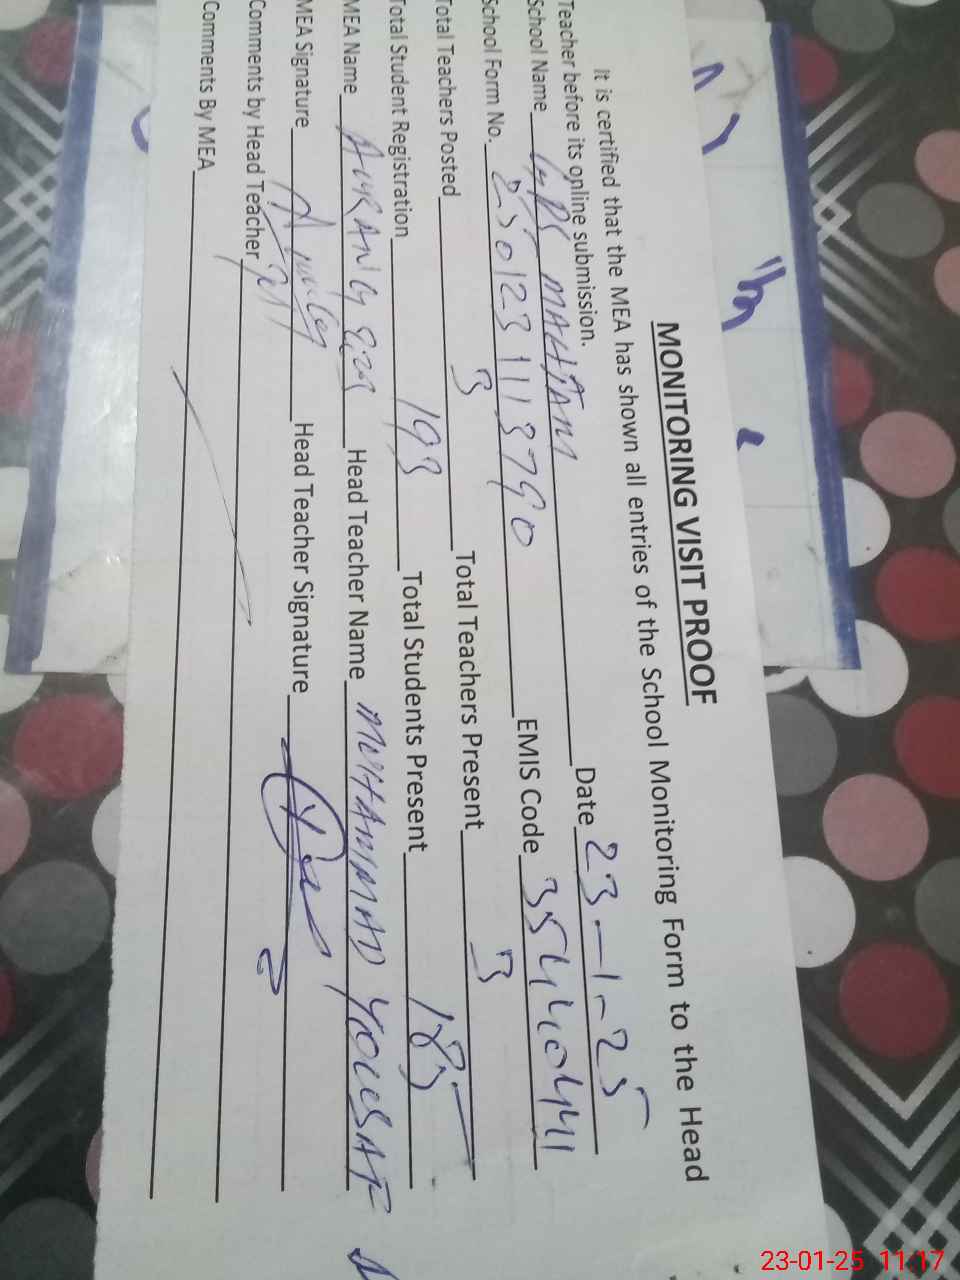 MONITORING VISIT PROOF
It is certified that the MEA has shown all entries of the School Monitoring Form to the Head
Teacher before its online submission.
School Name GPS MACHANA Date 23-1-25
School Form No. 230123113790 EMIS Code 35440441
Total Teachers Posted 3 Total Teachers Present 3
Total Student Registration 193 Total Students Present 185
MEA Name AURANGZEB Head Teacher Name MUHAMMAD YOUSAF
MEA Signature Head Teacher Signature
Comments by Head Teacher
Comments By MEA
23-01-25 11:17